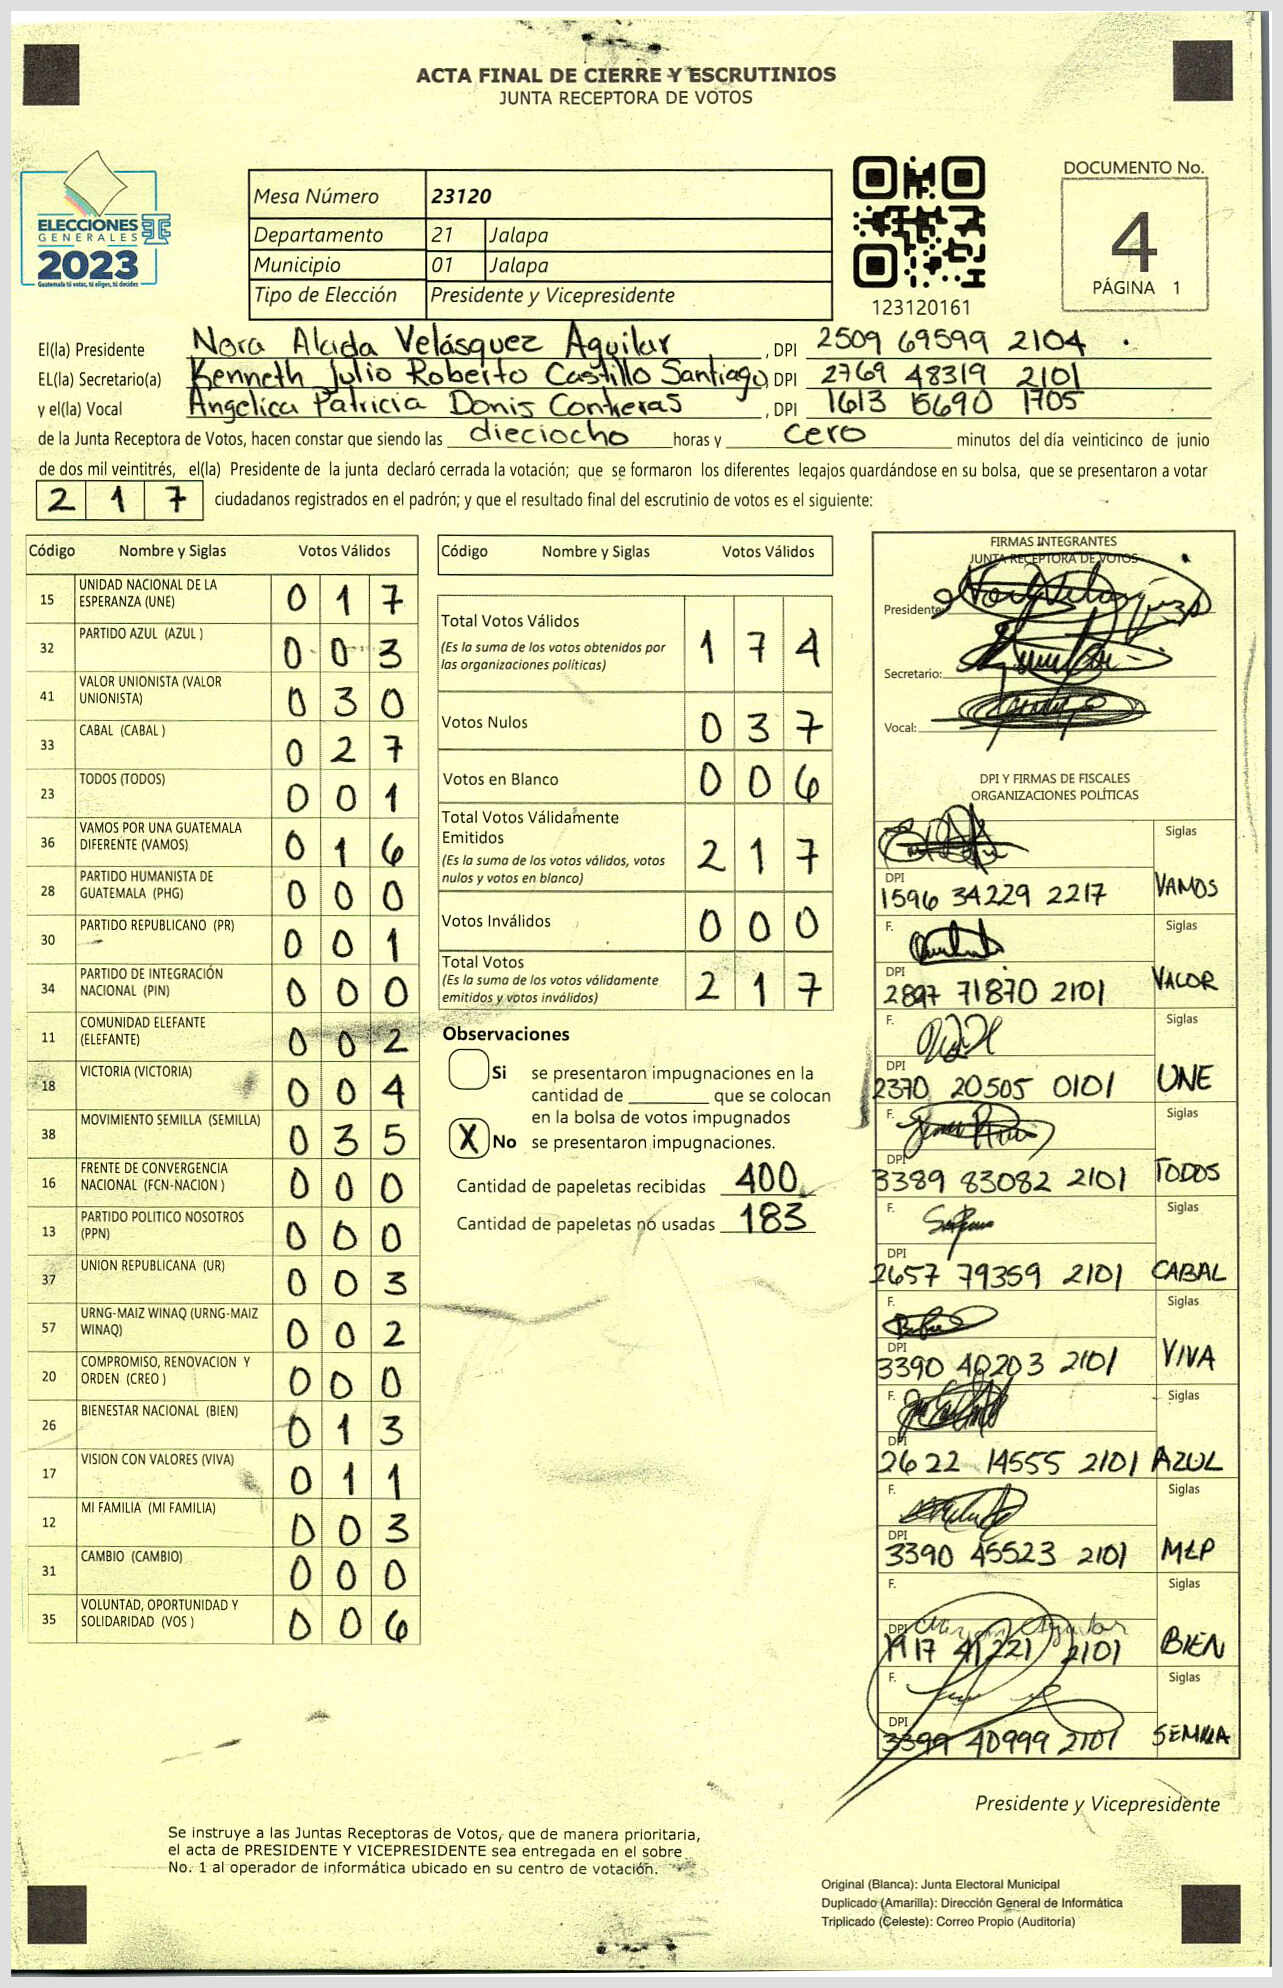 ACTA FINAL DE CIERRE Y ESCRUTINIOS
JUNTA RECEPTORA DE VOTOS
ELECCIONES
GENERALES
2023
Guatemala tú votas, tú eliges, tú decides
Mesa Número 23120
Departamento 21 Jalapa
Municipio 01 Jalapa
Tipo de Elección Presidente y Vicepresidente
123120161
DOCUMENTO No.
4
PÁGINA 1
El(la) Presidente Nora Alada Velásquez Aguilar, DPI 2509 69599 2104
EL(la) Secretario(a) Kenneth Julio Roberto Castillo Santiago, DPI 2769 48319 2101
y el(la) Vocal Angelica Patricia Donis Contreras, DPI 1613 15690 1705
de la Junta Receptora de Votos, hacen constar que siendo las dieciocho horas y cero minutos del día veinticinco de junio
de dos mil veintitrés, el(la) Presidente de la junta declaró cerrada la votación; que se formaron los diferentes legajos guardándose en su bolsa, que se presentaron a votar
217 ciudadanos registrados en el padrón; y que el resultado final del escrutinio de votos es el siguiente:
Código Nombre y Siglas Votos Válidos
15 UNIDAD NACIONAL DE LA ESPERANZA (UNE) 017
32 PARTIDO AZUL (AZUL ) 003
41 VALOR UNIONISTA (VALOR UNIONISTA) 030
33 CABAL (CABAL ) 027
23 TODOS (TODOS) 001
36 VAMOS POR UNA GUATEMALA DIFERENTE (VAMOS) 016
28 PARTIDO HUMANISTA DE GUATEMALA (PHG) 000
30 PARTIDO REPUBLICANO (PR) 001
34 PARTIDO DE INTEGRACIÓN NACIONAL (PIN) 000
11 COMUNIDAD ELEFANTE (ELEFANTE) 002
18 VICTORIA (VICTORIA) 004
38 MOVIMIENTO SEMILLA (SEMILLA) 035
16 FRENTE DE CONVERGENCIA NACIONAL (FCN-NACION ) 000
13 PARTIDO POLITICO NOSOTROS (PPN) 000
37 UNION REPUBLICANA (UR) 003
57 URNG-MAIZ WINAQ (URNG-MAIZ WINAQ) 002
20 COMPROMISO, RENOVACION Y ORDEN (CREO ) 000
26 BIENESTAR NACIONAL (BIEN) 013
17 VISION CON VALORES (VIVA) 011
12 MI FAMILIA (MI FAMILIA) 003
31 CAMBIO (CAMBIO) 000
35 VOLUNTAD, OPORTUNIDAD Y SOLIDARIDAD (VOS ) 006
Código Nombre y Siglas Votos Válidos
Total Votos Válidos 174
(Es la suma de los votos obtenidos por
las organizaciones políticas)
Votos Nulos 037
Votos en Blanco 006
Total Votos Válidamente
Emitidos 217
(Es la suma de los votos válidos, votos
nulos y votos en blanco)
Votos Inválidos 000
Total Votos 217
(Es la suma de los votos válidamente
emitidos y votos inválidos)
Observaciones
Si se presentaron impugnaciones en la
cantidad de ________ que se colocan
en la bolsa de votos impugnados
X No se presentaron impugnaciones.
Cantidad de papeletas recibidas 400
Cantidad de papeletas no usadas 183
FIRMAS INTEGRANTES
JUNTA RECEPTORA DE VOTOS
Presidente:
Secretario:
Vocal:
DPI Y FIRMAS DE FISCALES
ORGANIZACIONES POLÍTICAS
Siglas
DPI
1596 34229 2217 VAMOS
F. Siglas
DPI
2897 71870 2101 VALOR
F. Siglas
DPI
2370 20505 0101 UNE
F. Siglas
DPI
3389 83082 2101 TODOS
F. Siglas
DPI
2657 79359 2101 CABAL
F. Siglas
DPI
3390 40203 2101 VIVA
F. Siglas
DPI
2622 14555 2101 AZUL
F. Siglas
DPI
3390 45523 2101 MLP
F. Siglas
DPI
1917 41221 2101 BIEN
F. Siglas
DPI
3399 40999 2101 SEMILLA
Presidente y Vicepresidente
Se instruye a las Juntas Receptoras de Votos, que de manera prioritaria,
el acta de PRESIDENTE Y VICEPRESIDENTE sea entregada en el sobre
No. 1 al operador de informática ubicado en su centro de votación.
Original (Blanca): Junta Electoral Municipal
Duplicado (Amarilla): Dirección General de Informática
Triplicado (Celeste): Correo Propio (Auditoría)